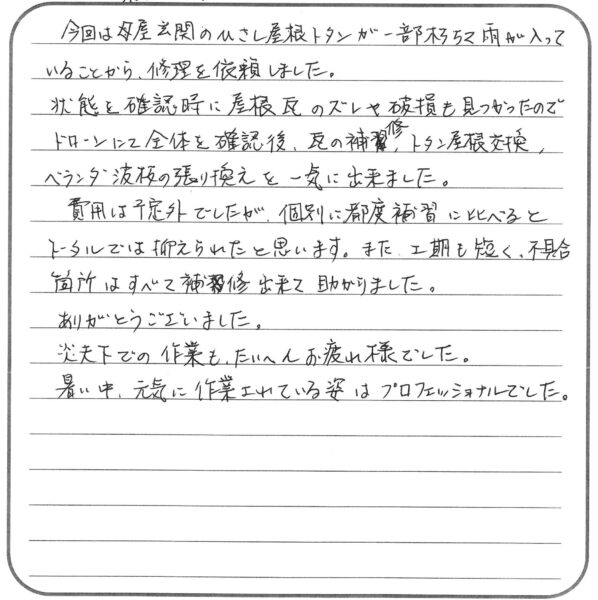 今回は母屋玄関のひさし屋根トタンが一部朽ちて雨が入って
いることから、修理を依頼しました。
状態を確認時に屋根瓦のズレや破損も見つかったので
ドローンにて全体を確認後、瓦の補修、トタン屋根交換、
ベランダ波板の張り換えを一気に出来ました。
費用は予定外でしたが、個別に都度補習に比べると
トータルでは抑えられたと思います。また、工期も短く、不具合
箇所はすべて補修出来て助かりました。
ありがとうございました。
炎天下での作業も、たいへんお疲れ様でした。
暑い中、元気に作業されている姿はプロフェッショナルでした。